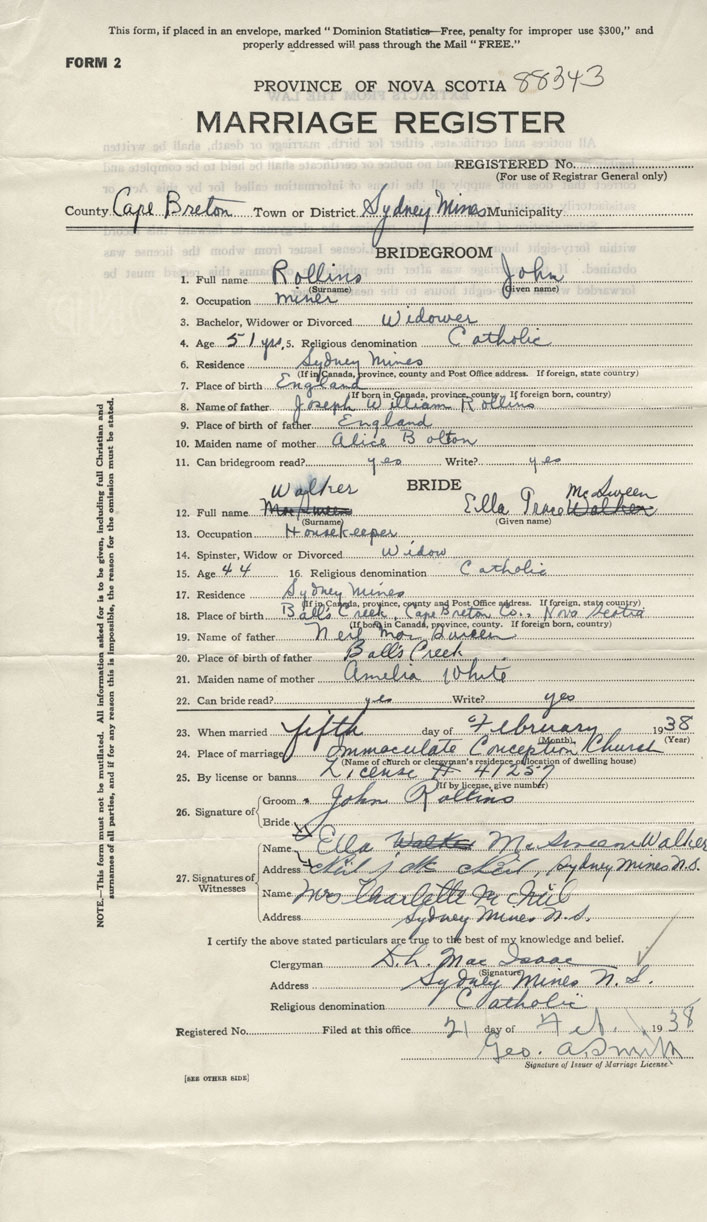 This form, if placed in an envelope, marked "Dominion Statistics—Free, penalty for improper use $300," and
properly addressed will pass through the Mail "FREE."
FORM 2
PROVINCE OF NOVA SCOTIA 88343
MARRIAGE REGISTER
REGISTERED No.
(For use of Registrar General only)
County Cape Breton Town or District Sydney Mines Municipality
BRIDEGROOM
1. Full name Rollins John
(Surname) (Given name)
2. Occupation miner
3. Bachelor, Widower or Divorced Widower
4. Age 51 yrs. 5. Religious denomination Catholic
6. Residence Sydney Mines
(If in Canada, province, county and Post Office address. If foreign, state country)
7. Place of birth England
(If born in Canada, province, county. If foreign born, country)
8. Name of father Joseph William Rollins
9. Place of birth of father England
10. Maiden name of mother Alice Bolton
11. Can bridegroom read? yes Write? yes
BRIDE
Walker McSween
12. Full name Ella Walker
(Surname) (Given name)
13. Occupation Housekeeper
14. Spinster, Widow or Divorced Widow
15. Age 44 16. Religious denomination Catholic
17. Residence Sydney Mines
(If in Canada, province, county and Post Office address. If foreign, state country)
18. Place of birth Ball's Creek, Cape Breton Co., Nova Scotia
(If born in Canada, province, county. If foreign born, country)
19. Name of father Neil MacSween
20. Place of birth of father Ball's Creek
21. Maiden name of mother Amelia White
22. Can bride read? yes Write? yes
23. When married fifth day of February 1938
(Month) (Year)
24. Place of marriage Immaculate Conception Church
(Name of church or clergyman's residence, or location of dwelling house)
25. By license or banns License # 41257
(If by license, give number)
26. Signature of Groom John Rollins
Bride
27. Signatures of Witnesses
Name Ella Walker McSween Walker
Address Neil J McNeil, Sydney Mines N.S.
Name Mrs Charlotte McNeil
Address Sydney Mines N.S.
I certify the above stated particulars are true to the best of my knowledge and belief.
Clergyman D.h. MacIsaac
(Signature)
Address Sydney Mines N.S.
Religious denomination Catholic
Registered No. Filed at this office 21 day of Feb. 1938
Geo. A. Smith
Signature of Issuer of Marriage License
[SEE OTHER SIDE]
NOTE.—This form must not be mutilated. All information asked for is to be given, including full Christian and
surnames of all parties, and if for any reason this is impossible, the reason for the omission must be stated.